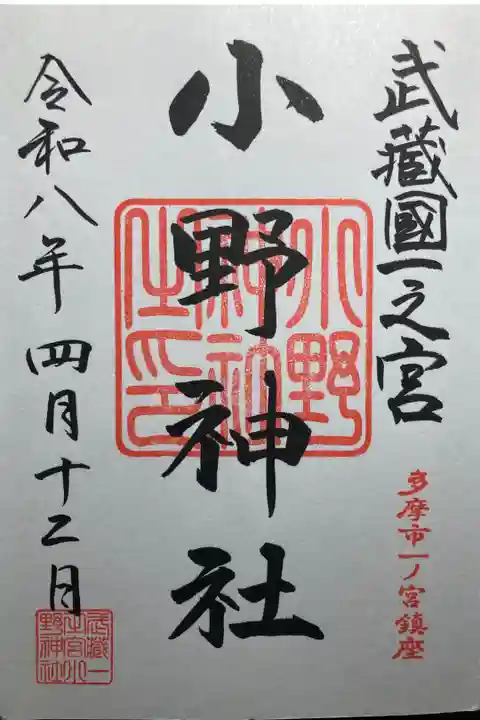 武蔵國一之宮
多摩市一ノ宮鎮座
小野神社
小野
神社
之印
令和八年四月十二日
武蔵一
之宮小
野神社